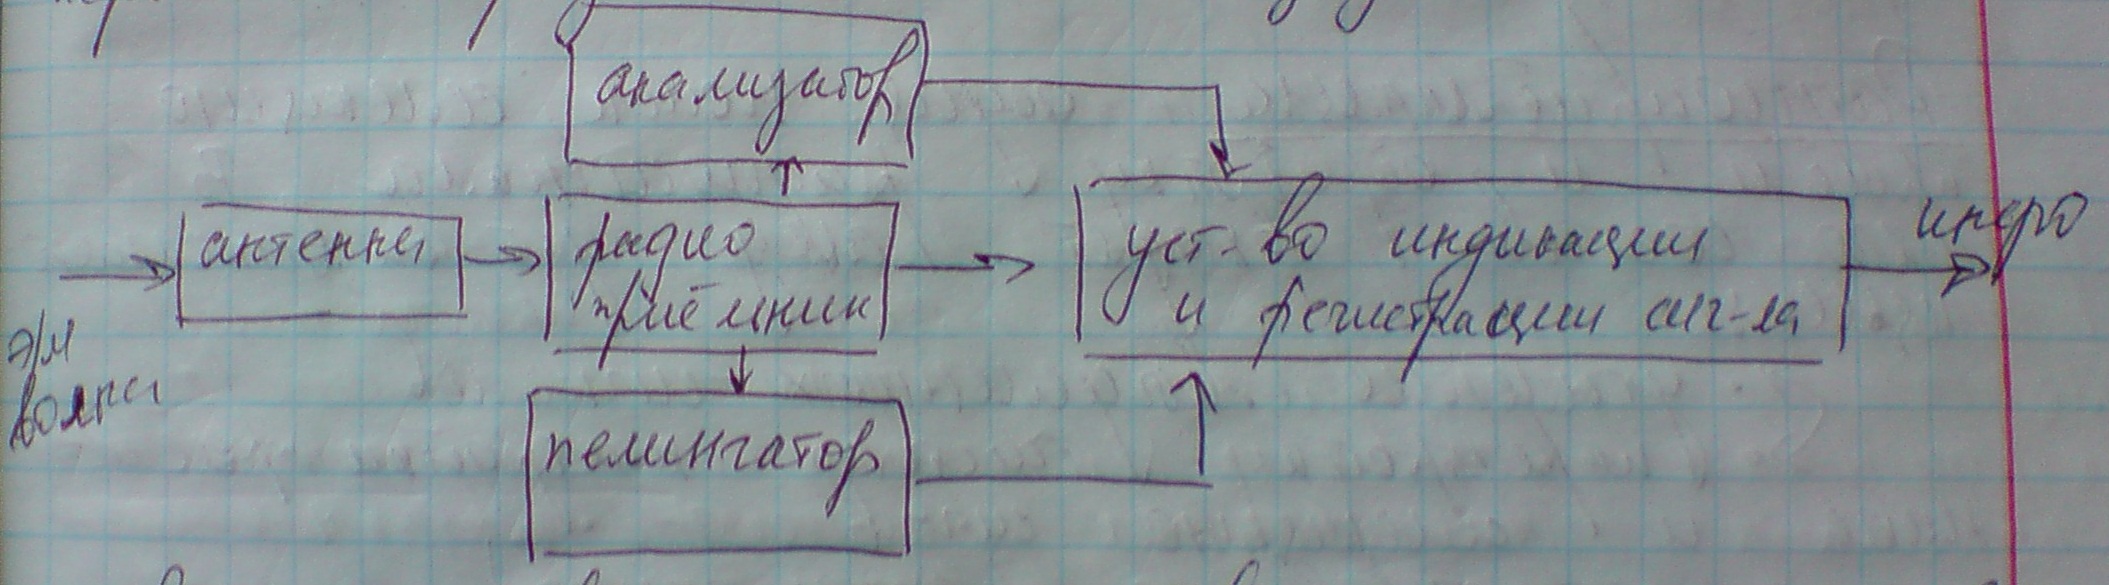 анализатор
э/м
волны
антенна
радио
приёмник
пеленгатор
уст-во индикации
и регистрации сиг-ла
инфо